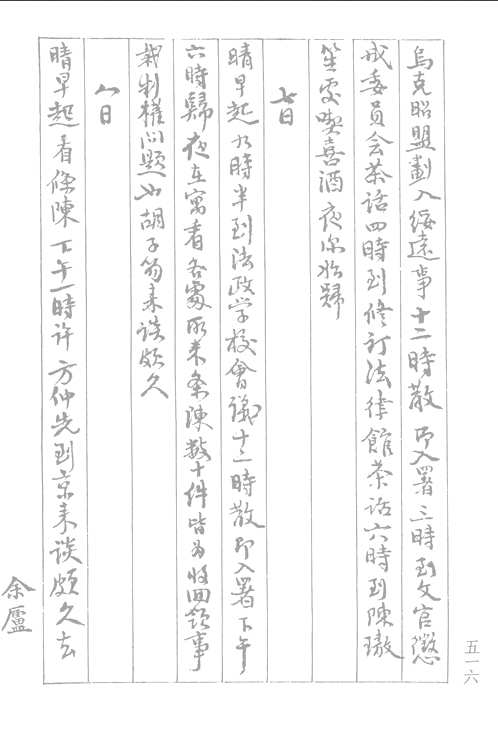 烏克昭盟劃入綏遠事十二時散即入署三時到文官懲
戒委員会茶话四時到修订法律館茶话六時到陳璈
笙處喫喜酒夜深始歸
七日
晴早起九時半到法政学校會議十二時散即入署下午
六時歸夜在寓看各處所来条陳数十件皆为收回領事
裁判權问题也胡子笏来谈颇久
八日
晴早起看條陳下午一時许方仲先到京来谈颇久去
余廬
五一六